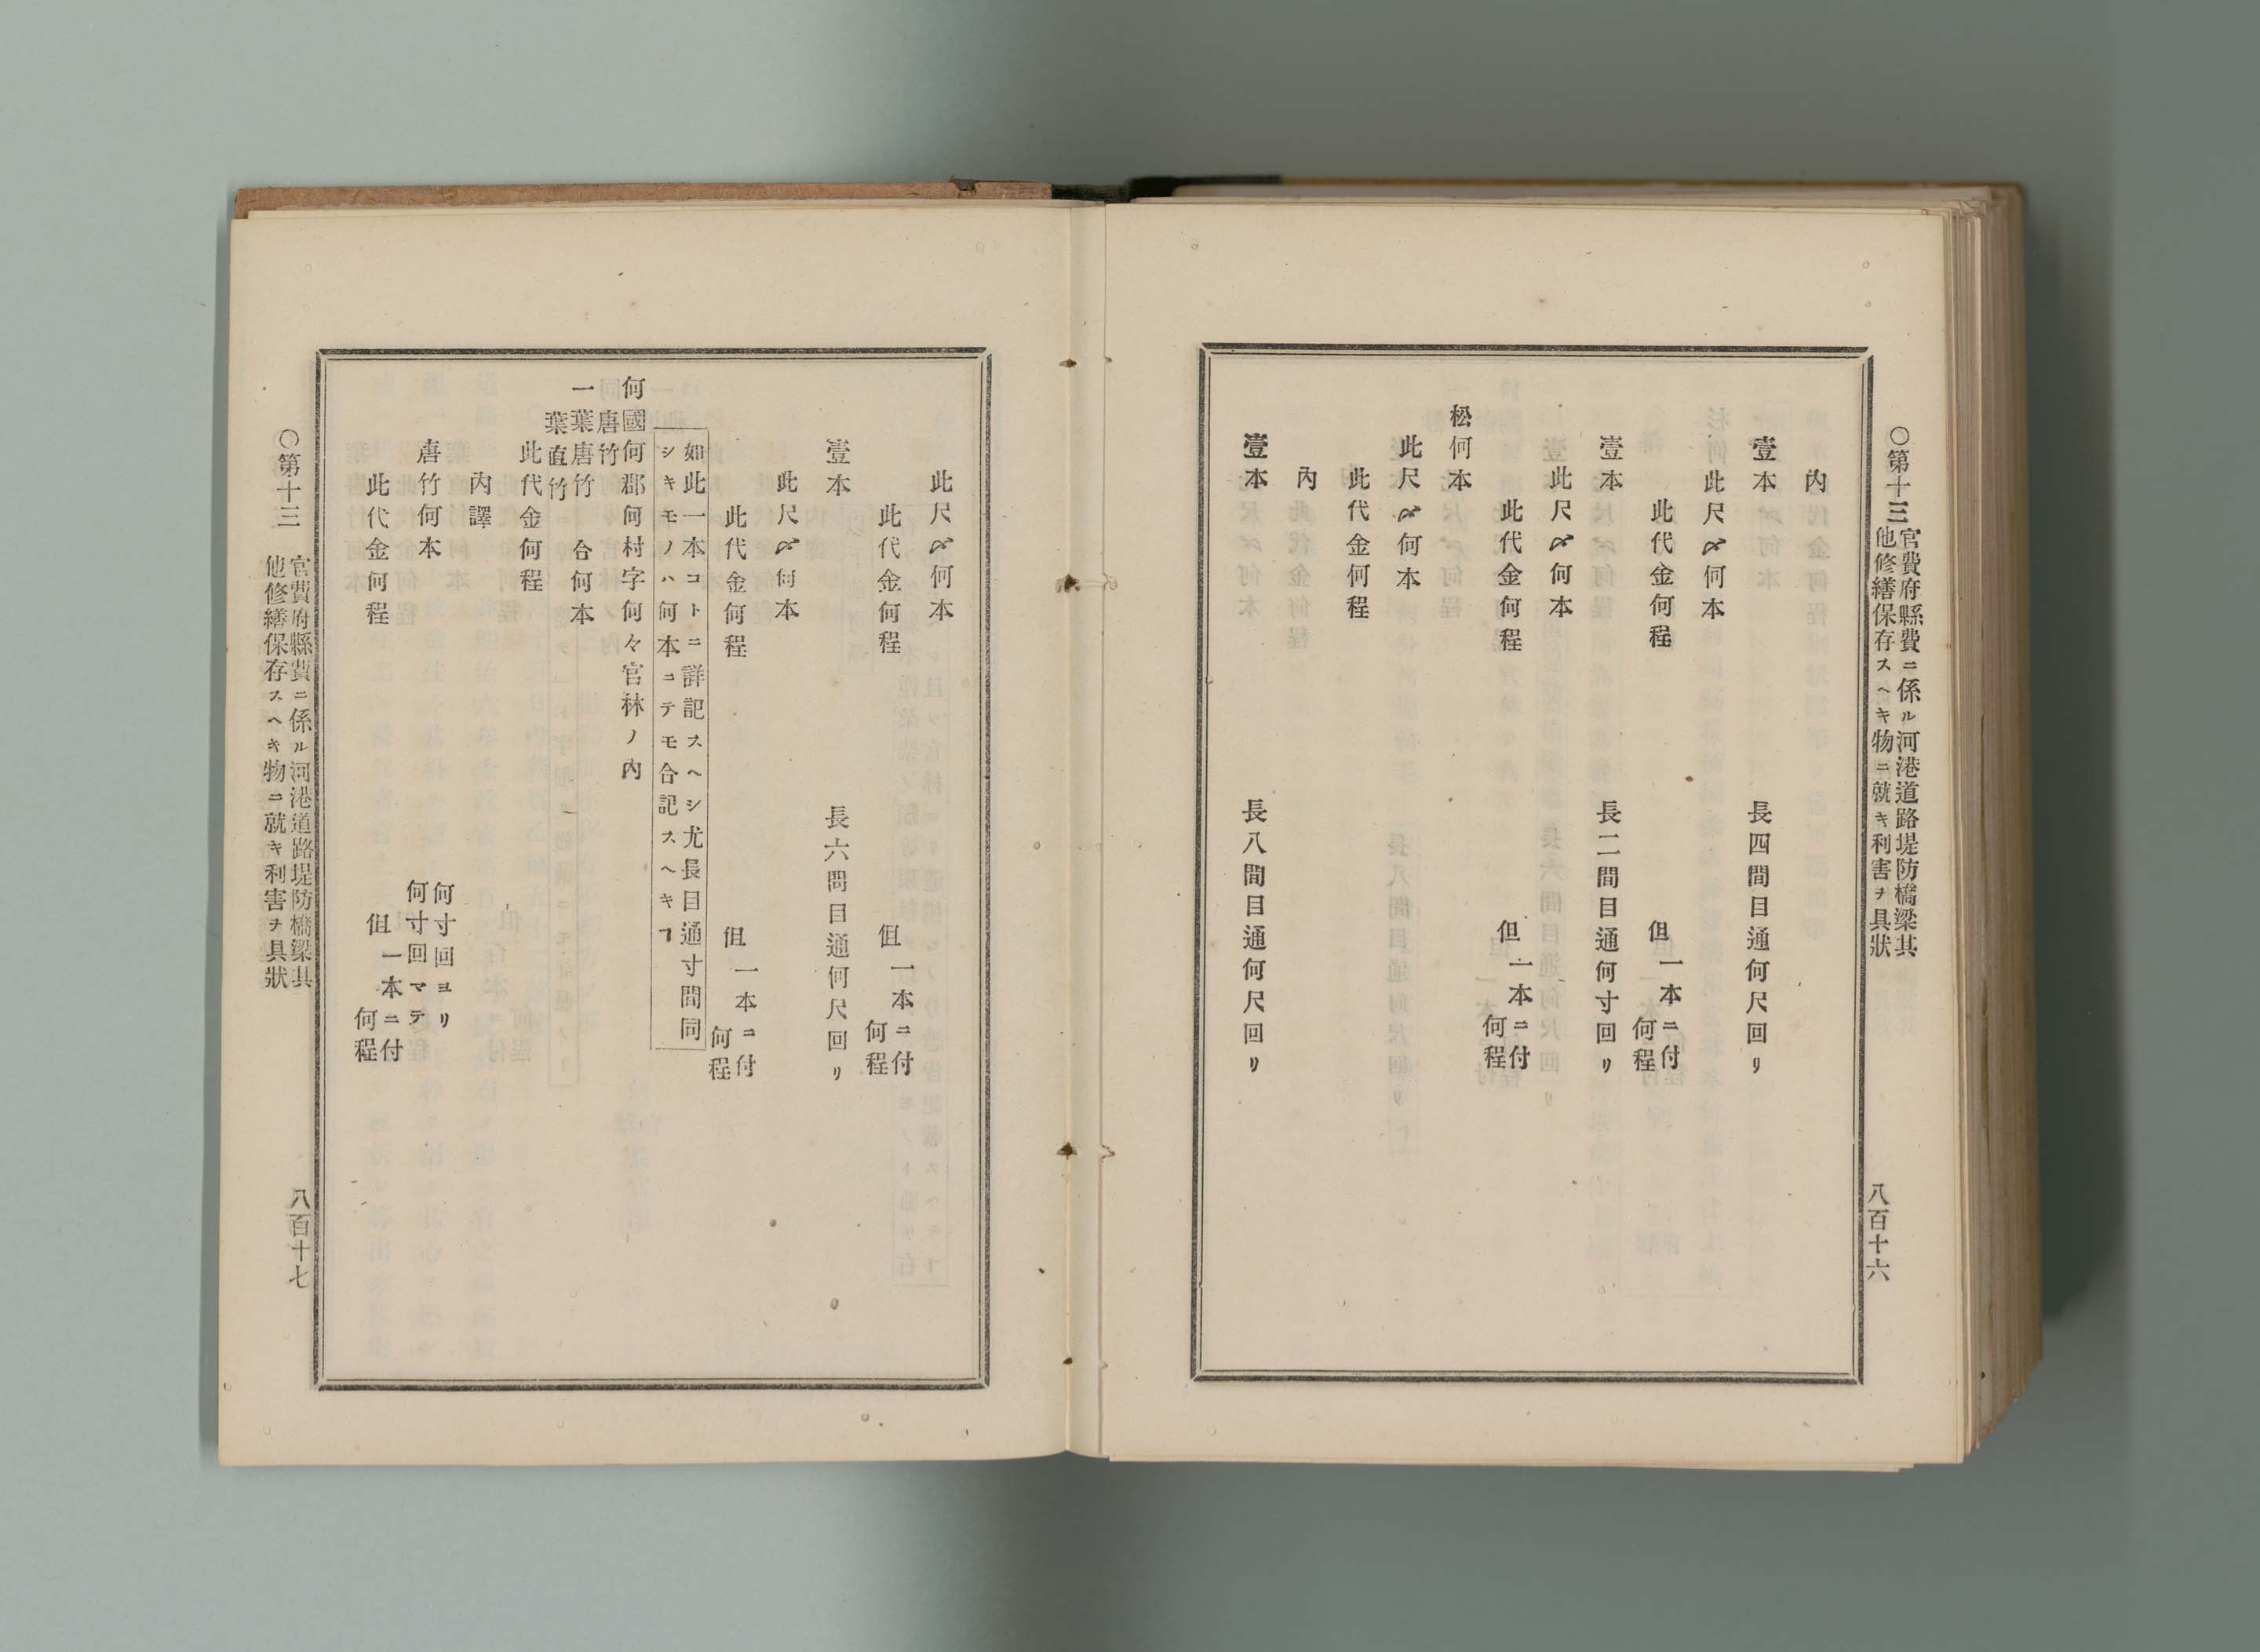 ○第十三
官費府縣費ニ係ル河港道路堤防橋梁其
他修繕保存スヘキ物ニ就キ利害ヲ具狀
八百十六
內
壹本 長四間目通何尺回リ
此尺〆何本
此代金何程 但一本ニ付何程
壹本 長二間目通何寸回リ
此尺〆何本
此代金何程 但一本ニ付何程
松何本
此尺〆何本
此代金何程
內
壹本 長八間目通何尺回リ
此尺〆何本
此代金何程 但一本ニ付何程
壹本 長六間目通何尺回リ
此尺〆何本
此代金何程 但一本ニ付何程
如此一本コトニ詳記スヘシ尤長目通寸間同
シキモノハ何本ニテモ合記スヘキヿ
何國何郡何村字何々官林ノ內
唐竹
一葉唐竹 合何本
葉直竹
此代金何程
內譯
唐竹何本 何寸回ヨリ
何寸回マテ
此代金何程 但一本ニ付何程
○第十三
官費府縣費ニ係ル河港道路堤防橋梁其
他修繕保存スヘキ物ニ就キ利害ヲ具狀
八百十七